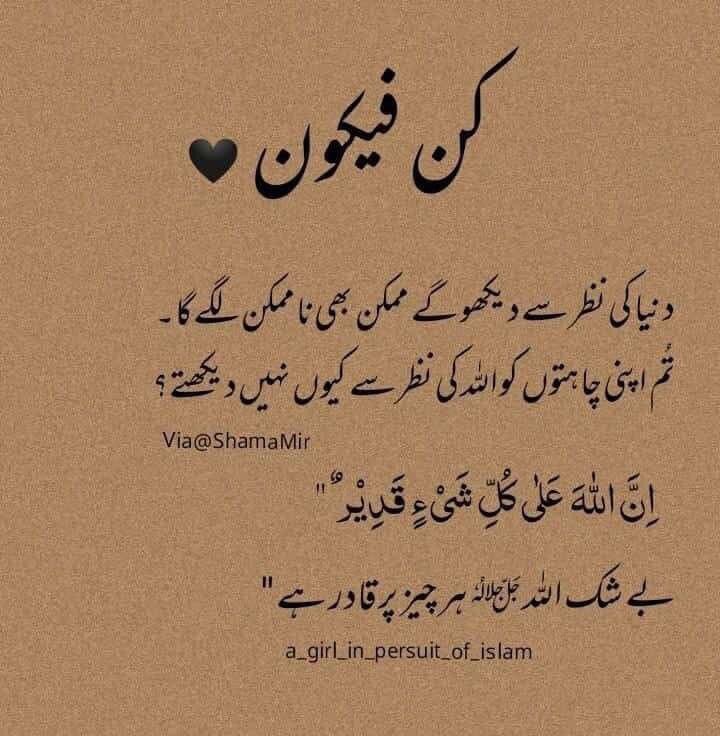 کن فیکون 🖤
دنیا کی نظر سے دیکھو گے ممکن بھی نا ممکن لگے گا۔
تُم اپنی چاہتوں کو اللہ کی نظر سے کیوں نہیں دیکھتے؟
Via@ShamaMir
اِنَّ اللّٰهَ عَلٰى كُلِّ شَىْءٍ قَدِيْرٌ "
بے شک اللہ جَلَّ جَلَالُہٗ ہر چیز پر قادر ہے "
a_girl_in_persuit_of_islam